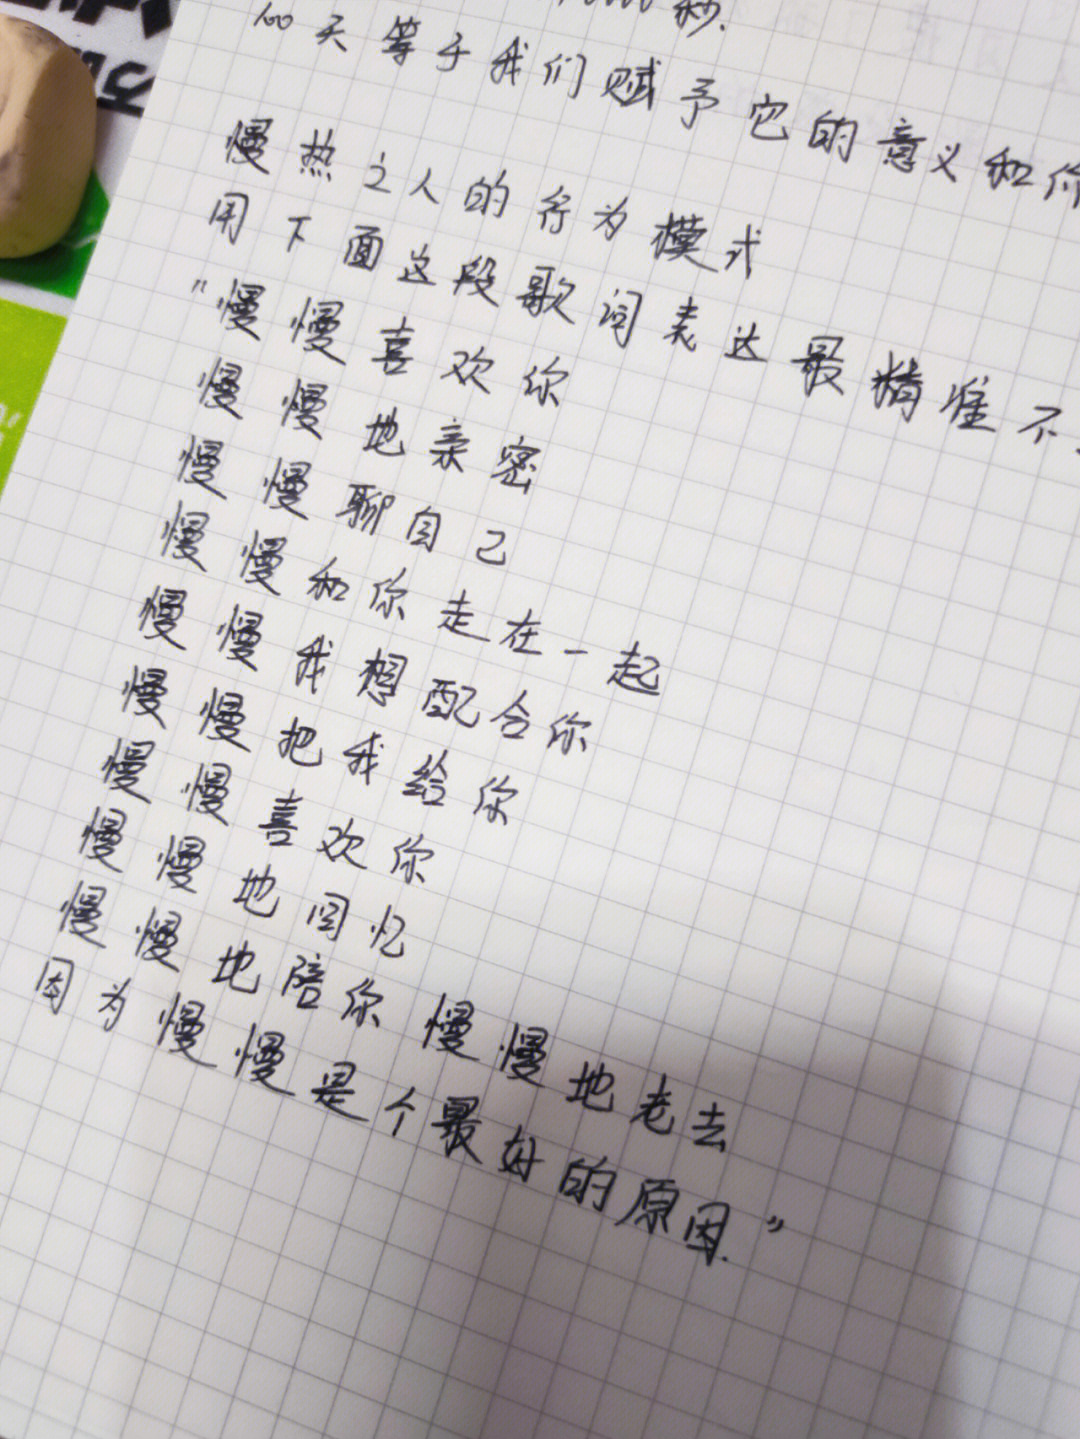 秒.
100天等于我们赋予它的意义和你
慢热之人的行为模式
用下面这段歌词表达最精准不
“慢慢喜欢你
慢慢地亲密
慢慢聊自己
慢慢和你走在一起
慢慢我想配合你
慢慢把我给你
慢慢喜欢你
慢慢地回忆
慢慢地陪你慢慢地老去
因为慢慢是个最好的原因.”